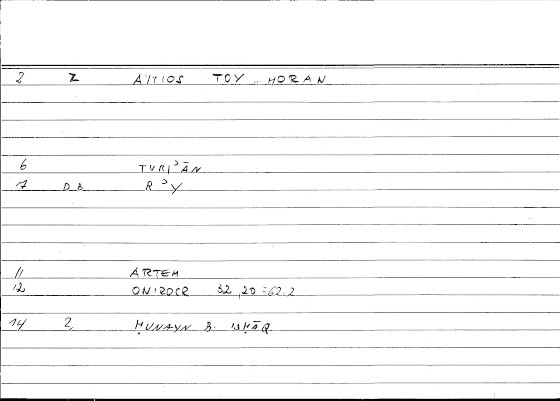 2 Z AITIOS TOY .. HORAN
6 TVRʾĀN
7 D.B. RʾY
11 ARTEM
12 ONIROCR 32,20 = 62.2
14 2, ḤUNAYN B. ISḤĀQ